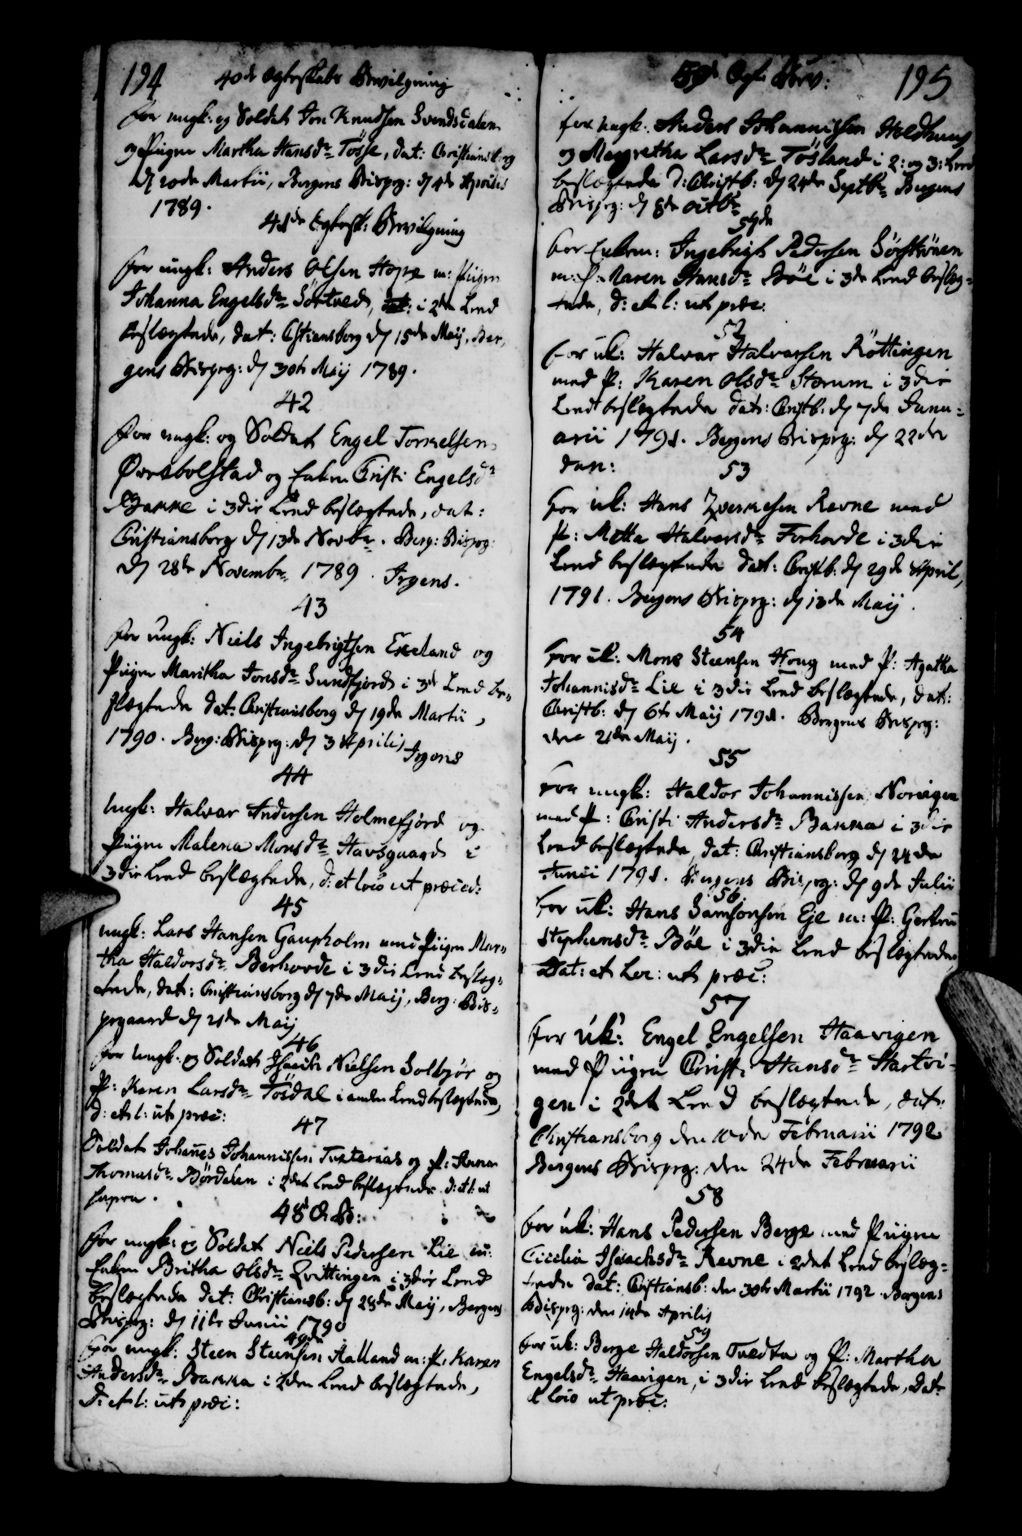 194
40de Egteskabs Bevilgning
for ungk: og Soldat Jon Knudsen Svendsdalen
og Piigen Martha Hansdr Tösse, dat: Christiansborg
d 20de Martii, Bergens Bispeg: d 4de Aprilis
1789.
41de Egtesk: Bevilgning
for ungk: Anders Olsen Hope m: Piigen
Johanna Engelsdr Sörtved, i 2den Leed
beslægtede, dat: Christiansborg d 15de Maij, Ber-
gens Bispeg: d 30te Maij 1789.
42
for ungk: og Soldat Engel Tormelsen
Øvrebolstad og Enken Cristi Engelsdr
Bakke i 3die Leed beslægtede, dat:
Christiansborg d 13de Novbr. Berg: Bispeg:
d 28de Novembr 1789. Irgens.
43
for ungk: Niels Ingebrigtsen Exeland og
Piigen Maritha Jonsdr Sundfjord i 3de Leed be-
slægtede dat: Christiansborg d 19de Martii,
1790. Berg: Bispeg: d 3 Aprilis Irgens
44
Ungk: Halvar Andersen Holmefjord og
Piigen Malena Monsdr Havsgaard i
3die Leed beslægtede, d: et loco ut præced:
45
ungk: Lars Hansen Gaupholm med Piigen Mar-
tha Haldorsdr Berhovde i 3die Leed beslæg-
tede, dat: Christiansborg d 7de Maij, Berg: Bis-
pegaard d 21de Maij
46
for Ungk: og Soldat Isaach Nielsen Solbjör og
P: Karen Larsdr Tösdal i anden Leed beslægtede,
d: et l: ut præc:
47
Soldat Johannes Johannissen Tuxteraas og P: Anna
Thomasdr Bördalen i 2det Leed beslægtede. d: et l: ut
supra.
48de Eg: B:
for ungk: og Soldat Niels Pedersen Lie m:
Enken Britha Olsdr Qvittingen i 3die Leed
beslægtede dat: Christiansb: d 28de Maij, Bergens
Bispeg: d 11te Junii 1790
49de
for ungk: Steen Steensen Aalland m: P: Karen
Andersdr Bakka i 2den Leed beslægtede,
D: et l: ut præc:
195
50de Egt: Bev:
for ungk: Anders Johannissen Holdhuus
og Margretha Larsdr Tösland i 2: og 3: Leed
beslægtede D: Christb: d 24de Septbr Bergens
Bispeg: d 8de Octbr
51de
for Enkem: Ingebrigt Pedersen Sörströnen
m: P: Maren Hansdr Böe i 3de Leed beslæg-
tede, d: et l: ut præc:
52
for uk: Halvar Halvarsen Röttingen
med P: Karen Olsdr Storum i 3die
Leed beslægtede dat: Christb: d 7de Janu-
arii 1791. Bergens Bispeg: d 22de
dan:
53
for uk: Hans Zverkesen Revne med
P: Metta Halversdr Forhovde i 3die
Leed beslægtede dat: Christb: d 29de April,
1791. Bergens Bispeg: d 13de Maij.
54
for uk: Mons Steensen Houg med P: Agatha
Johannisdr Lie i 3die Leed beslægtede, dat:
Christb: d 6te Maij 1791. Bergens Bispeg:
den 21de Maij.
55
for ungk: Haldor Johannissen Norvigen
med P: Cristi Andersdr Bakka i 3die
Leed beslægtede, dat: Christiansborg d 24de
Junii 1791. Bergens Bispeg: d 9de Julii
56
for uk: Hans Samsonsen Eje m: P: Gertru
Stephensdr Böe i 3die Leed beslægtede,
Dat: et Loc: ut præc:
57
for uk: Engel Engelsen Haavigen
med Piigen Cristi Hansdr Hartvi-
gen i 2det Leed beslægtede, dat:
Christiansborg den 10de Februarii 1792
Bergens Bispeg: den 24de Februarii
58
for uk: Hans Pedersen Berge med Piigen
Cicelia Isaachsdr Revne i 2det Leed beslæg-
tede dat: Christiansb: den 30te Martii 1792. Bergens
Bispeg: den 14de Aprilis
59
for uk: Berge Haldorsen Tvedta og P: Martha
Engelsdr Haavigen, i 3die Leed beslægtede, Dat:
& loco ut præc: